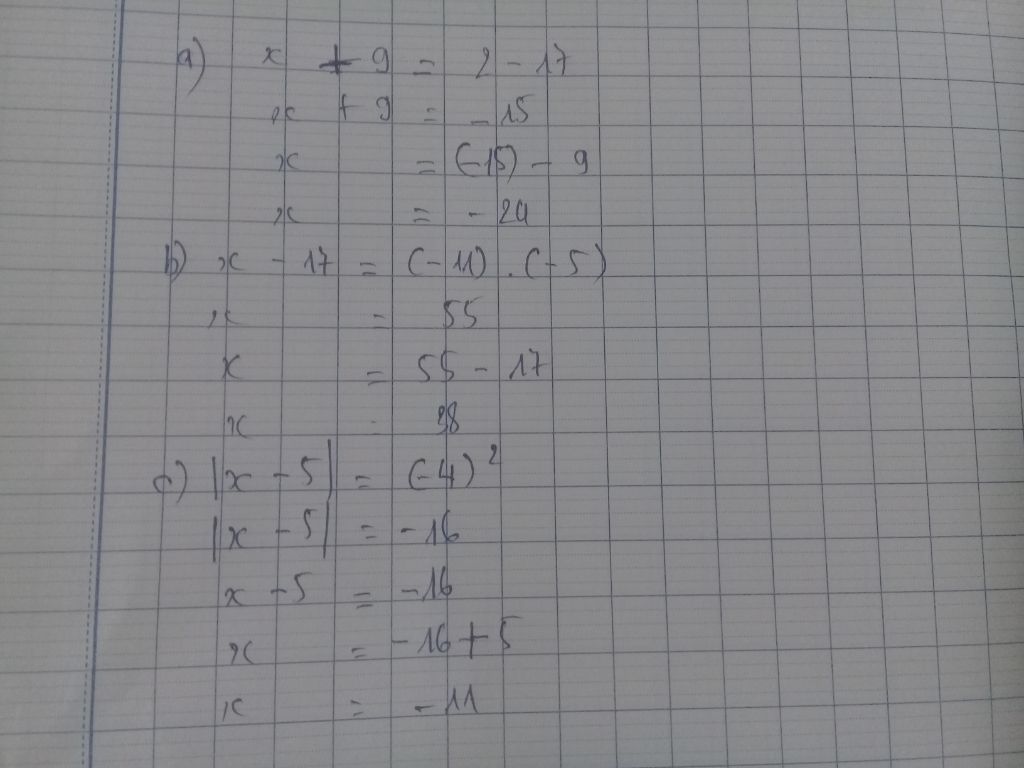 a) x + 9 = 2 - 17
x + 9 = -15
x = (-15) - 9
x = -24
b) x - 17 = (-11) . (-5)
x = 55
x = 55 - 17
x = 38
c) |x - 5| = (-4)²
|x - 5| = -16
x - 5 = -16
x = -16 + 5
x = -11